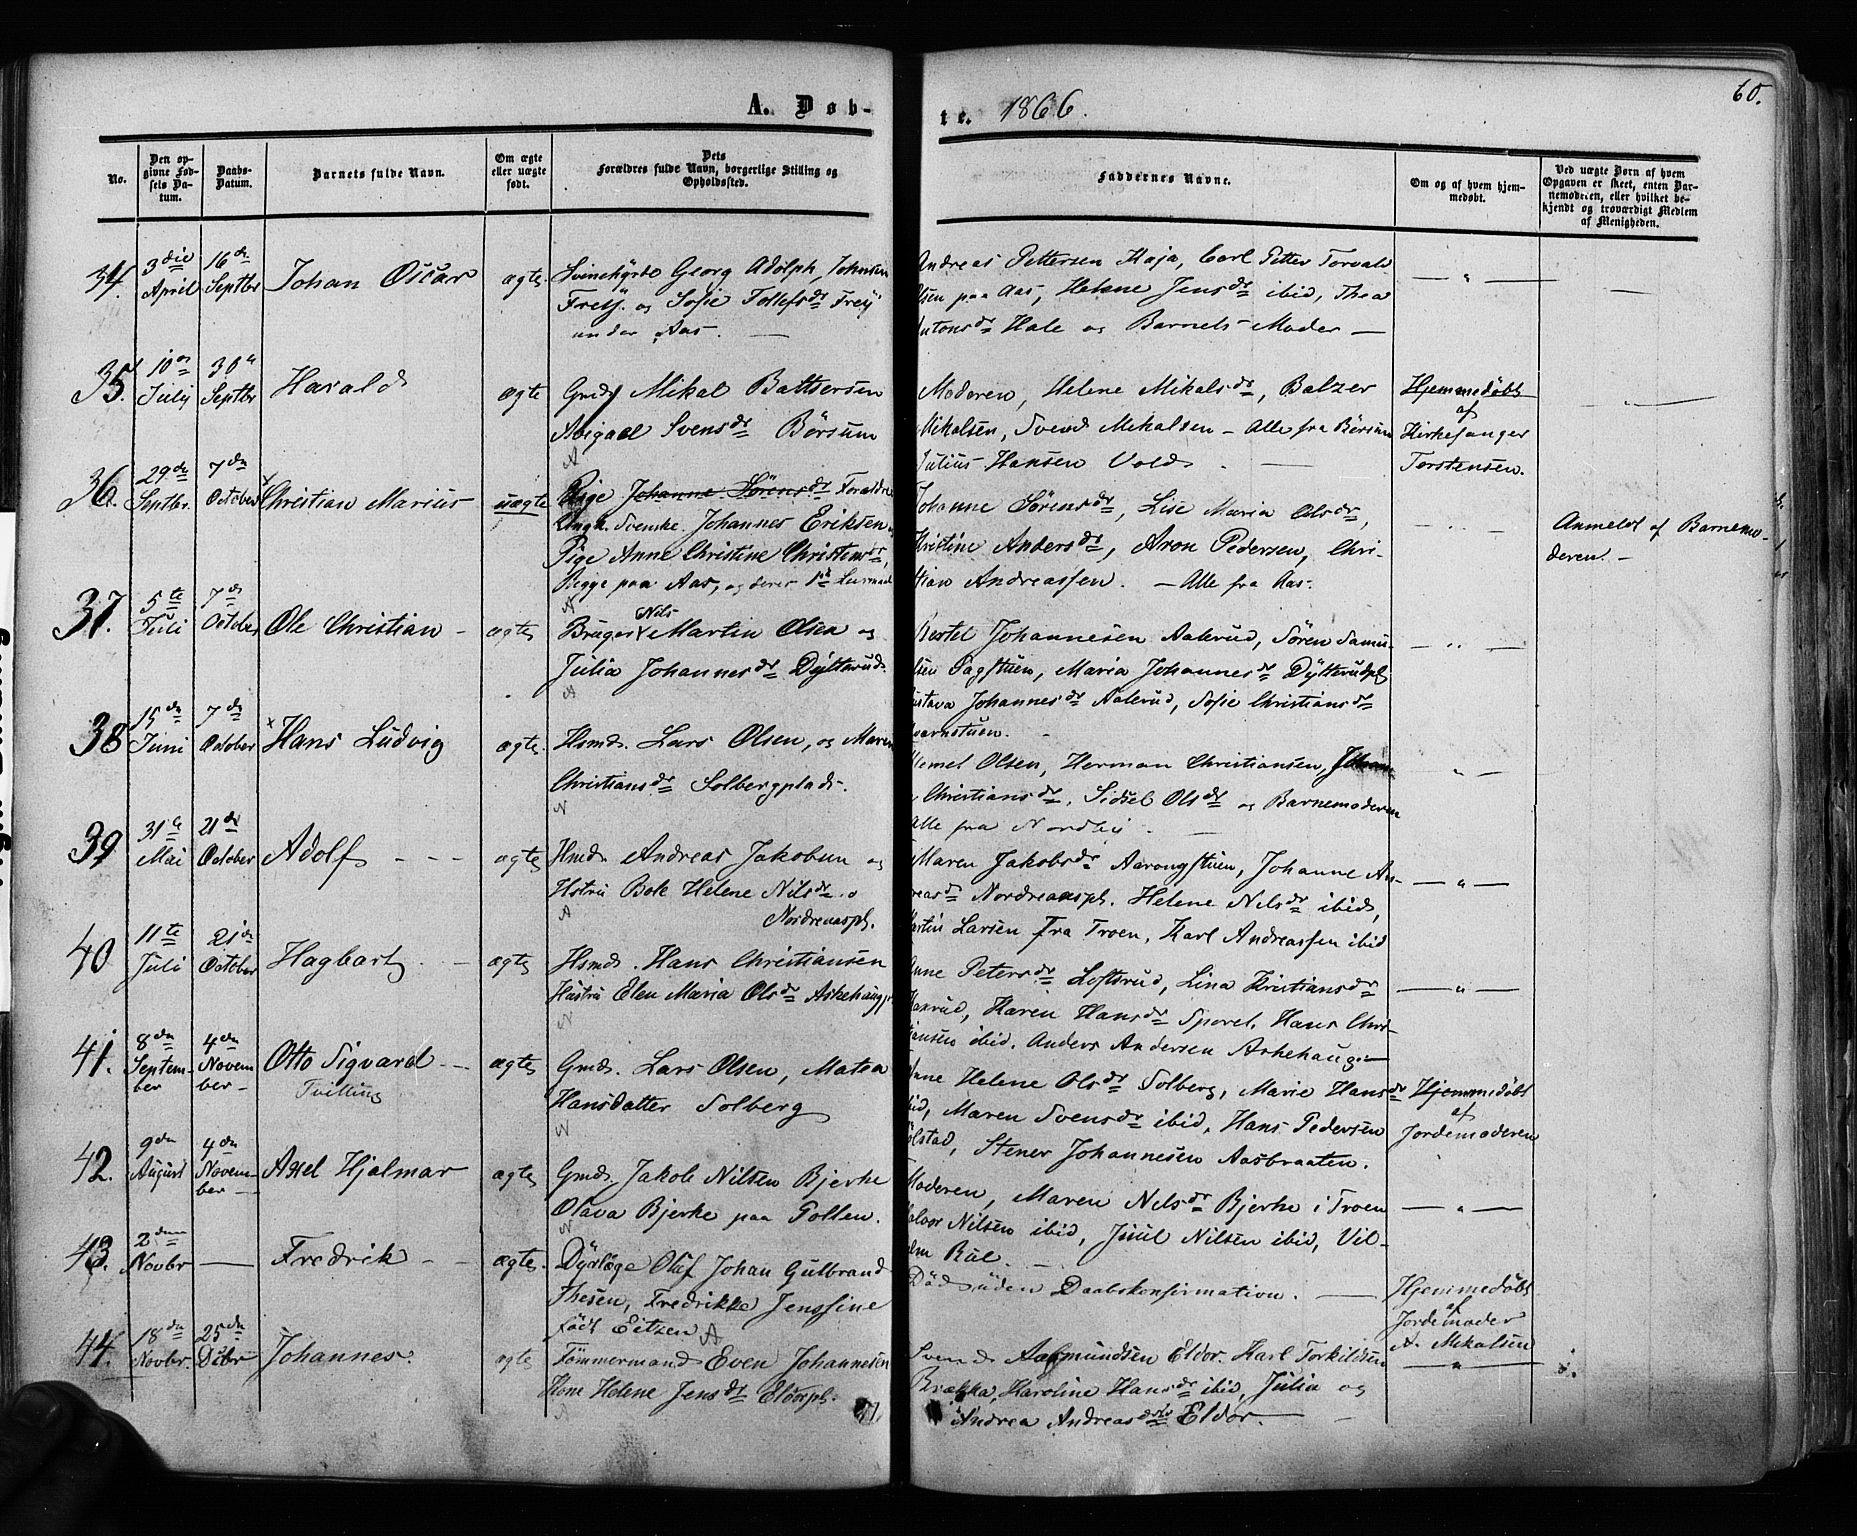 A. Døb-
te. 1866.
60.
No.
Den opgivne Fødsels Datum.
Daabs-Datum.
Barnets fulde Navn.
Om ægte eller uægte født.
Dets Forældres fulde Navn, borgerlige Stilling og Opholdssted.
Faddernes Navne.
Om og af hvem hjemmedøbt.
Ved uægte Børn af hvem Opgaven er skeet, enten Barnemoderen, eller hvilket bekjendt og troværdigt Medlem af Menigheden.
34. 3die April 16de Septbr Johan Oscar ægte.
Georg Adolph Johnsen
og Sofie Tollefsdr
under Aas.
Andreas Pettersen Haja, Carl Petter Torvald
Olsen paa Aas, Helene Jensdr ibid, Thea
Antonsdr Hale og Barnets Moder —
35. 10de Julij 30te Septbr Harald ægte
Gmd Mikal Baltsersen
Abigael Svensdr Börsum
A
Moderen, Helene Mikalsdr, Balzer
Mikalsen, Svend Mikalsen – Alle fra Børsum
Julius Hansen Vold.
Hjemmedøbt
af
Kirkesanger
Torstensen.
36. 29de Septbr. 7de October Christian Marius uægte
Pige Johanne Sörensdr Forældre
Ungk. Svenske. Johannes Eriksen
Pige Anne Christine Christensdr,
Begge paa Aas, og deres 1ste Leiermaal
A
Johanne Sørensdr, Lise Maria Olsdr,
Christine Andersdr, Aron Pedersen, Chri-
stian Andreassen. – Alle fra Aas.
Anmeldt af Barnemo-
deren. –
37. 5te Juli 7de October Ole Christian – ægte
Nils
Bruger Martin Olsen og
Julia Johannesdr Dytterud.
A
Bertel Johannesen Aalerud, Søren Samu-
elsen Sagstuen, Maria Johannesdr Dytterudpl
Gustava Johannesdr Aalerud, Sofie Christiansdr
Kvarnstuen.
38 15de Juni 7de October Hans Ludvig ægte.
Hsmd. Lars Olsen, og Maren
Christiansdr Solbergplads.
N
Klemet Olsen, Herman Christiansen, Johan-
Christiansdr, Sidsel Olsdr og Barnemoderen
alle fra Nordby.
39 31te Mai 21de October Adolf – – – ægte
Hsmd. Andreas Jakobsen og
Hstru Bole Helene Nilsdr.
Nordreaaspl.
A
Maren Jakobsdr Aarongstuen, Johanne An-
dreasdr Nordreaaspl. Helene Nilsdr ibid,
Martin Larsen fra Troen, Karl Andreassen ibid
40 11te Juli 21de October Hagbart. – ægte
Hsmd. Hans Christiansen
Hustru Elen Maria Olsdr Askehaugpl
N
Anne Petersdr Loftsrud, Lina Kristiansdr
Haxrud, Karen Hansdr Sporet. Hans Chri-
stiansen ibid. Anders Andersen Askehaug. —
41. 8de September 4de November – Otto Sigvard – –
Tvilling
ægte
Gmd. Lars Olsen, Matea
Hansdatter Solberg
N
Anne Helene Olsdr Solberg, Marie Hansdr
ibid, Maren Svensdr ibid, Hans Pedersen
Kolstad, Stener Johannesen Aasbraaten.
Hjemmedøbt
af
Jordemoderen
42. 9de August 4de November – Axel Hjalmar ægte
Gmd. Jakob Nilsen Bjerke
Olava Bjerke paa Pollen.
N
Moderen, Maren Nilsdr Bjerke i Troen
Halvor Nilsen ibid, Juul Nilsen ibid, Vil-
helm Rül.
43. 2den Novbr — Fredrik – – ægte.
Dyrlæge Oluf Johan Gulbrand
Thesen, Fredrikke Jensine
født Eitzen
A
Död uden Daabskonfirmation. —
Hjemmedøbt
af
Jordemoder
A. Mikalsen
44. 18de Novbr. 25de Dcbr Johannes. ægte
Tömmermand Even Johannesen
Kone Helene Jensdr Eldorpl.
A
Svend Aasmundsen Eldor. Karl Torkildsen
Brække, Karoline Hansdr ibid, Julia og
Andrea Andreasdøtr Eldor. —